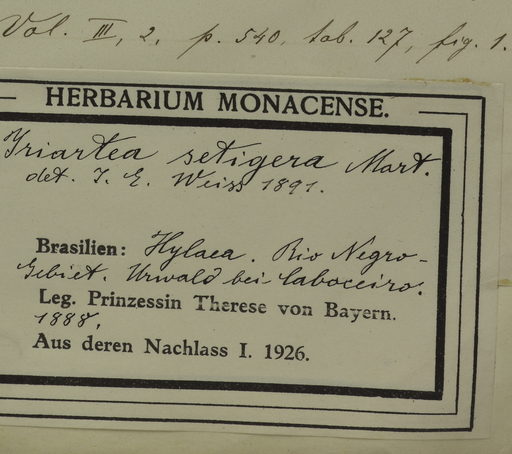 Vol. III, 2, p. 540, tab. 127, fig. 1.
HERBARIUM MONACENSE.
Iriartea setigera Mart.
det. J. E. Weiss 1891.
Brasilien: Hylaea. Rio Negro-
Gebiet. Urwald bei Caboceiro.
Leg. Prinzessin Therese von Bayern.
1888.
Aus deren Nachlass I. 1926.